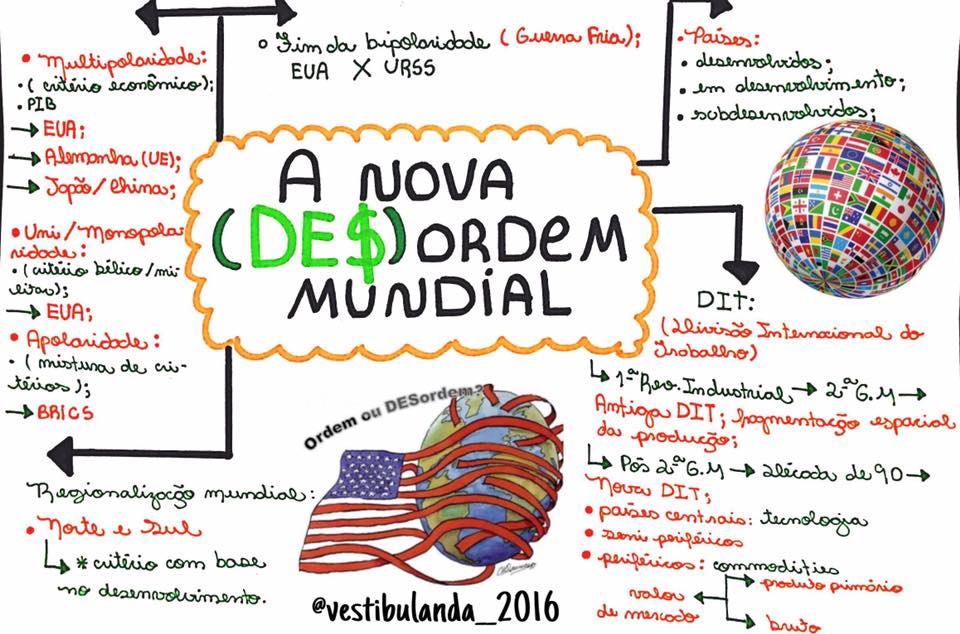 • Multipolaridade:
• (critério econômico);
• PIB
→ EUA;
→ Alemanha (UE);
→ Japão/China;
• Uni/Monopola
ridade:
• (critério bélico/mi
litar);
→ EUA;
• Apolaridade:
• (mistura de cri-
térios);
→ BRICS
○ Fim da bipolaridade (Guerra Fria);
EUA X URSS
• Países:
• desenvolvidos;
• em desenvolvimento;
• subdesenvolvidos;
A NOVA
(DE$)ORDEM
MUNDIAL
DIT:
(Divisão Internacional do
Trabalho)
↳ 1ª Rev. Industrial → 2ª G.M →
Antiga DIT; fragmentação espacial
da produção;
↳ Pós 2ª G.M → década de 90 →
Nova DIT;
• países centrais: tecnologia
• semi periféricos
• periféricos: commodities
→ produto primário
valor ←
de mercado
→ bruto
Regionalização mundial:
• Norte e Sul
↳ * critério com base
no desenvolvimento.
Ordem ou DESordem?
@vestibulanda_2016